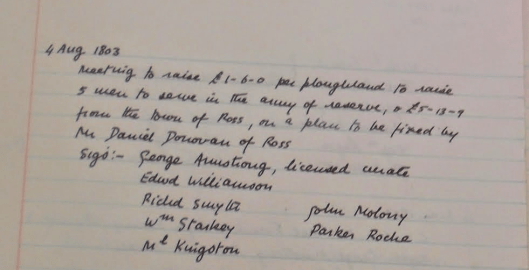 4 Aug 1803
Meeting to raise £1-6-0 per ploughland to raise
5 men to serve in the army of reserve, & £5-13-9
from the town of Ross, on a plan to be fixed by
Mr Daniel Donovan of Ross
Sigs:- George Armstrong, licensed curate
Edwd Williamson
Richd Smyth John Molony
Wm Starkey Parker Roche
Ml Kingston